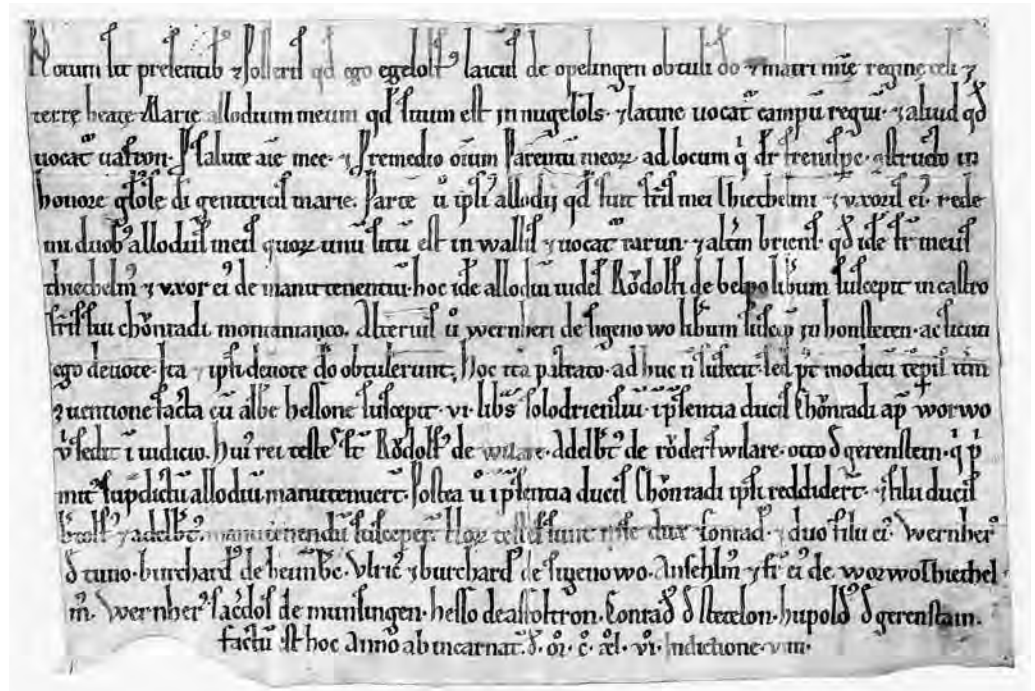 Notum sit presentib⁹ ⁊ posteris qd ego egelolf⁹ laicus de opelingen obtuli do ⁊ matri mie regine celi ⁊
terrę beatę Marie allodium meum qd situm est in nugelols · ⁊ latine uocat campū regiū · ⁊ aliud qd
uocat uastron · P salute aīe mee · ⁊ P remedio oīum Parentū meoꝝ ad locum q dr frenispe · astructo in
honore gl̄ose di genitricis marie. Parte ū ipsi allodij qd fuit fris mei Thiethelmi ⁊ uxoris ei⁹ rede
mi duob⁹ allodiis meis quoꝝ unū sitū est in wallis ⁊ uocat rarun · ⁊ alt̄m briens · qd idē fr̄ meus
thiethelm⁹ ⁊ uxor ei⁹ de manutenentiū · hoc idē allodiū uidel Rodolfi de belpo libum suscepit in castro
fris sui chonradi montanianco. Alterius ū wernheri de sigenowo libum suscep in honsteren · ac sicuti
ego deuote · Ita ⁊ ipsi deuote do obtulerunt; Hoc ita patrato · ad huc n suffecit · sed p⁹ modicū tēpis itm
ɔuentione facta cū albe hessone suscepit · vi · libs solodriensiū · ī psentia ducis Chonradi ap worwo
ū sedit ī iudicio. Hui⁹ rei testes st Rodolf⁹ de wilare · Adelbt⁹ de roderswilare · otto d gerenstein · q p
mit⁹ sup dictū allodiū manutenuert · Postea ū ī psentia ducis Chonradi ipsi reddidert · ⁊ filii ducis
btolf⁹ ⁊ adelbt⁹ manutenendū susceper Hoꝝ testes sunt ipse dux Conrad⁹ · ⁊ duo filii ei⁹ · Wernher⁹
d tuno · burchard⁹ de heimbc · Vlric⁹ ⁊ burchard⁹ de sigenowo · Anselm⁹ ⁊ fr̄ ei⁹ de worwo Thiethel
m⁹ · Wernher⁹ sacdos de munsingen · hesso de assoltron · Conrad⁹ d stetelon · hupold⁹ d gerenstain.
factū st hoc Anno ab incarnat · d · oi · c · xl · vi · Indictione · viiii ·